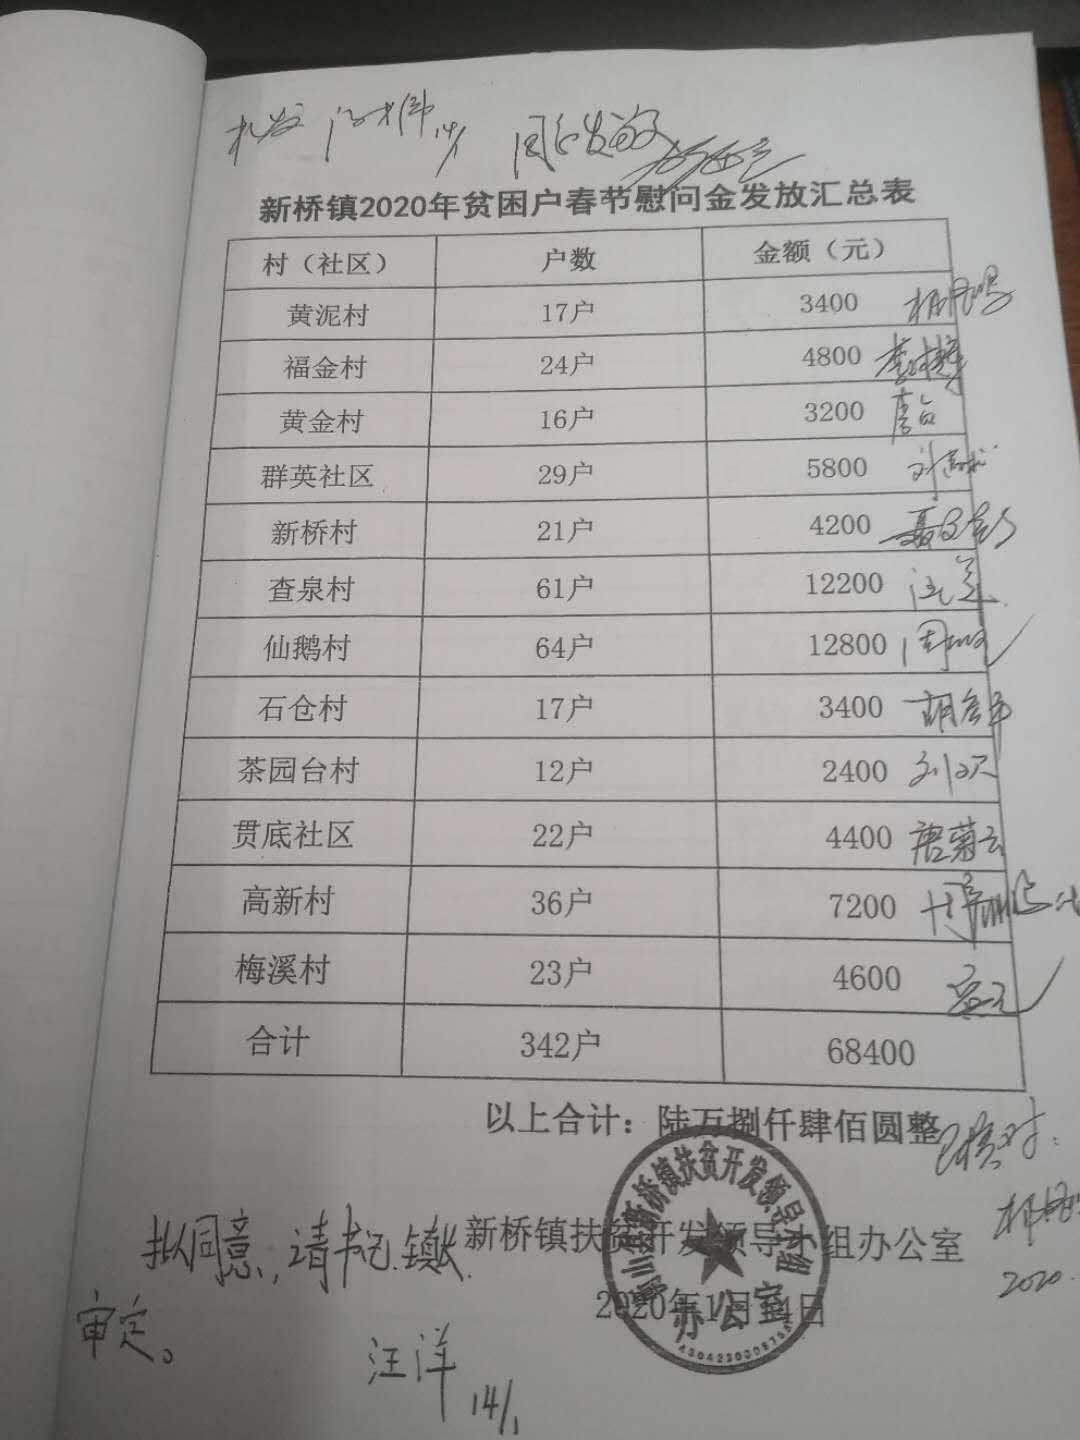 同意发放
新桥镇2020年贫困户春节慰问金发放汇总表
村（社区） 户数 金额（元）
黄泥村 17户 3400
福金村 24户 4800
黄金村 16户 3200
群英社区 29户 5800
新桥村 21户 4200
查泉村 61户 12200
仙鹅村 64户 12800
石仓村 17户 3400
茶园台村 12户 2400
贯底社区 22户 4400 唐菊云
高新村 36户 7200
梅溪村 23户 4600
合计 342户 68400
以上合计：陆万捌仟肆佰圆整
已核对：
新桥镇扶贫开发领导小组办公室
2020.
2020年1月14日
新桥镇扶贫开发领导小组
办公室
拟同意，请书记.镇长
审定。
汪洋
14/1